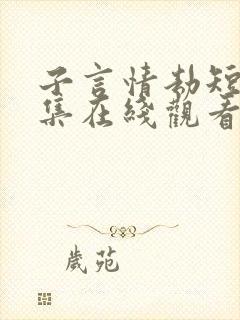 子言情劫短
集在綫觀看
歲苑